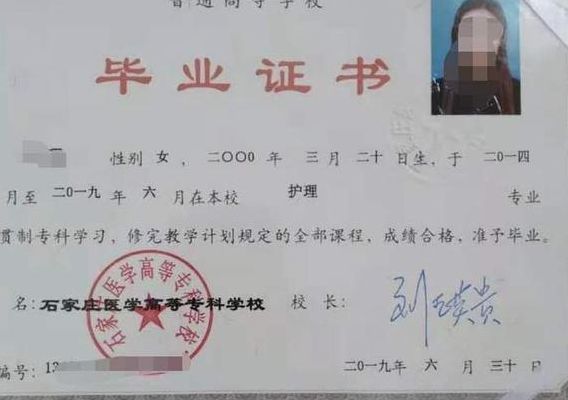 普通高等学校
毕业证书
性别 女，二〇〇〇年 三 月 二十 日生，于 二〇一四
月至 二〇一九 年 六 月在本校 护理 专业
贯制专科学习，修完教学计划规定的全部课程，成绩合格，准予毕业。
名：石家庄医学高等专科学校 校 长：
石家庄医学高等专科学校
编号：1 二〇一九年 六 月 三十 日